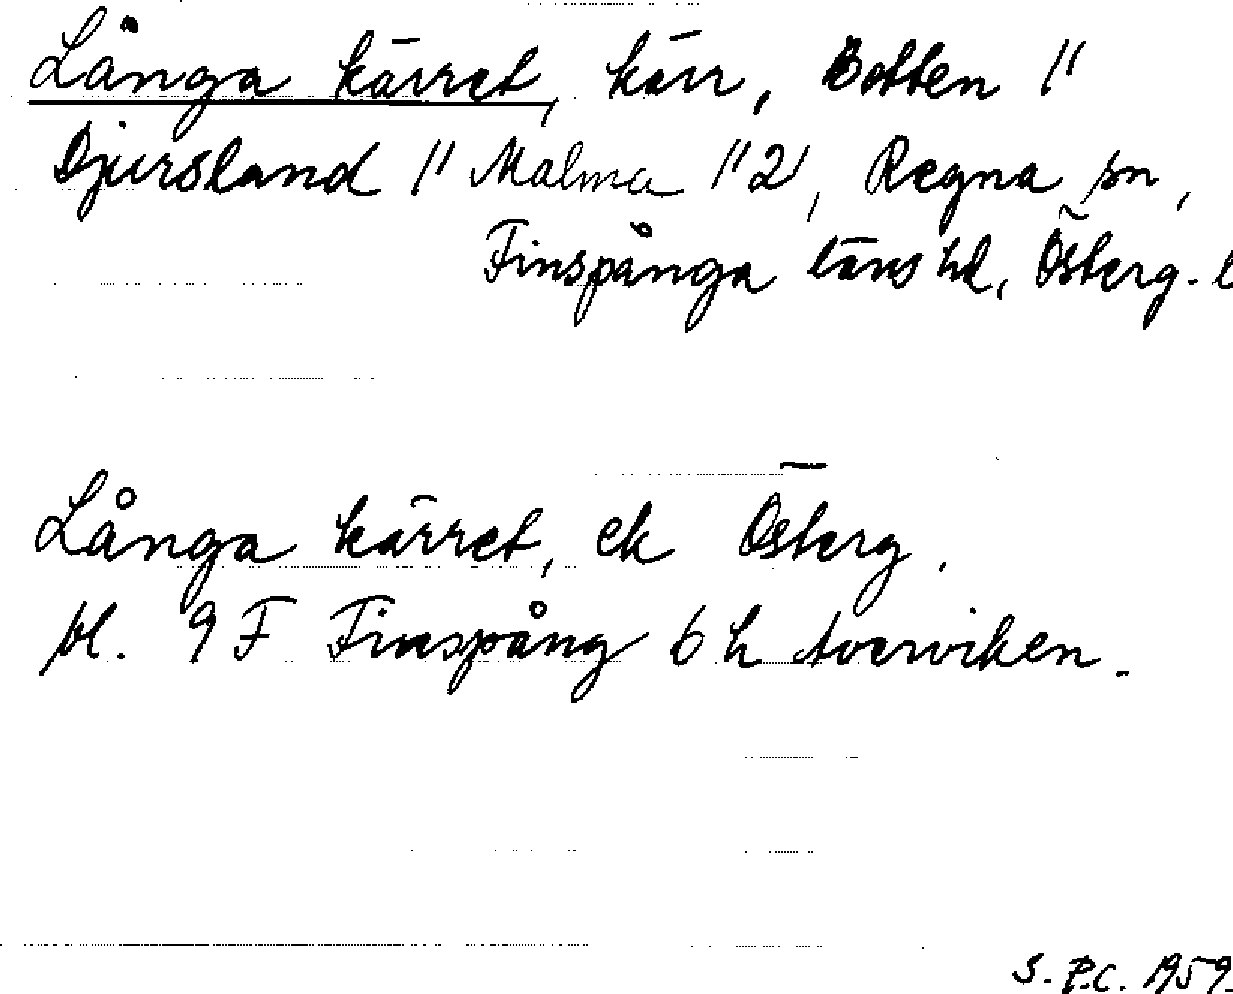 Långa kärret, kärr, Botten 11
Djursland 11 Malma 112, Regna sn,
Finspånga läns hd, Österg. l
Långa kärret, ek Österg.
bl. 9 F Finspång 6 h Averviken.
S. P.C. 1959.